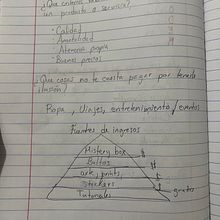 ¿Que criterio
un producto o servicio?
· Calidad
· Amabilidad
· Atención propia
· Buenos precios
¿Que cosas no te cuesta pagar por tenerlo
Ropa, Viajes, entretenimiento / eventos
Fuentes de ingresos
Mistery box
Bultos
arte, prints,
Stickers
Tutoriales
gratis